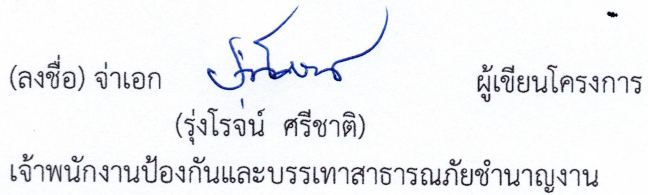 (ลงชื่อ) จ่าเอก ผู้เขียนโครงการ
(รุ่งโรจน์ ศรีชาติ)
เจ้าพนักงานป้องกันและบรรเทาสาธารณภัยชำนาญงาน